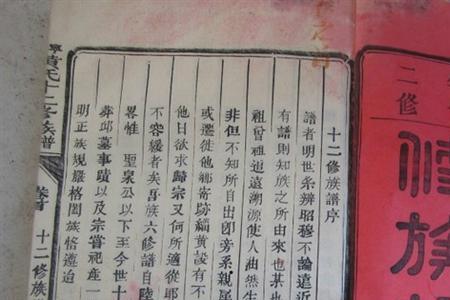 二修
修族
十二修族譜序
譜者明世系辨昭穆不論遠近
有譜則知族之所由來也其出
祖曾祖追遠溯源使人油然生
非但不知所自出卽旁系親屬
或遷徙他鄉寄跡
他日欲求歸宗又何所適從耶
不容緩者矣吾族六修譜自陸
畧惟 聖泉公以下至今世十
葬邱墓事蹟以及宗嘗祀產一
明正族規嚴格閤族恪遵迨
寧黃氏十二修族譜 卷首 十二修族